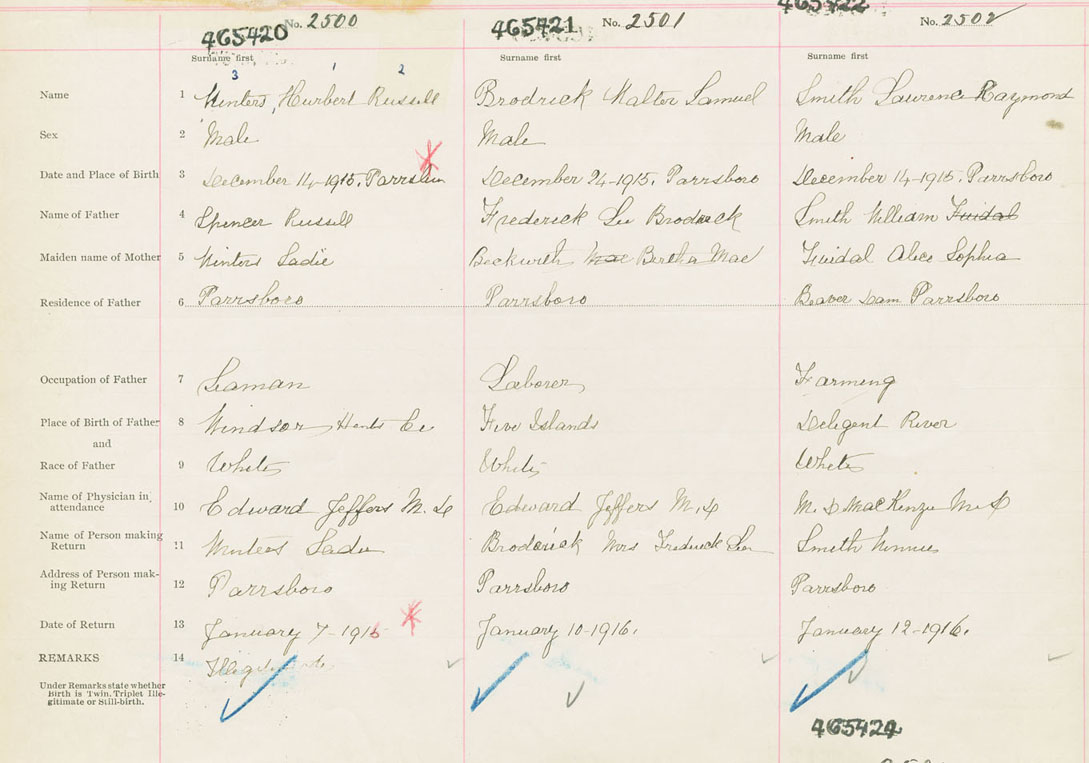 465420 No. 2500 465421 No. 2501 465422 No. 2502
Surname first Surname first Surname first
3 1 2
Name 1 Winters, Hurbert Russell Brodrick Walter Samuel Smith Laurence Raymond
Sex 2 Male Male Male
Date and Place of Birth 3 December 14-1915. Parrsboro December 24-1915. Parrsboro December 14-1915. Parrsboro
Name of Father 4 Spencer Russell Frederick Lee Brodrick Smith William Fuidal
Maiden name of Mother 5 Winters Sadie Beckwith Mae Bertha Mae Fuidal Alice Sophia
Residence of Father 6 Parrsboro Parrsboro Beaver Dam Parrsboro
Occupation of Father 7 Seaman Laborer Farming
Place of Birth of Father 8 Windsor, Hants Co Five Islands Deligent River
and
Race of Father 9 White White White
Name of Physician in attendance 10 Edward Jeffers M.D Edward Jeffers M.D M. D MacKenzie M.D
Name of Person making Return 11 Winters Sadie Broderick Mrs Frederick Lee Smith
Address of Person making Return 12 Parrsboro Parrsboro Parrsboro
Date of Return 13 January 7-1916 January 10-1916. January 12-1916.
REMARKS 14 Illegitimate
Under Remarks state whether
Birth is Twin, Triplet Ille-
gitimate or Still-birth.
465424